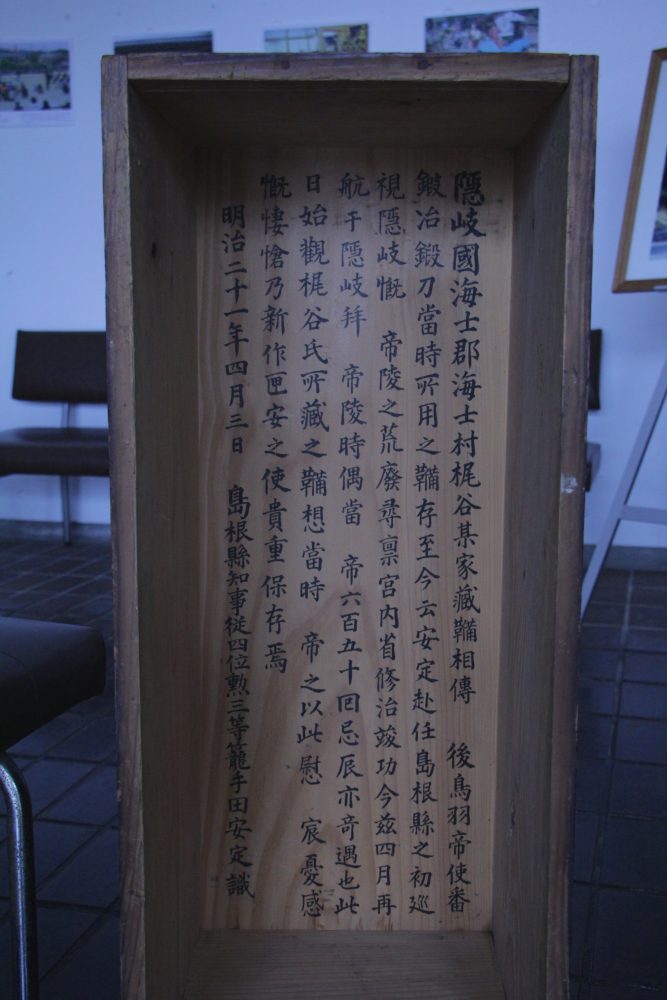 隱岐國海士郡海士村梶谷某家藏鞴相傳　後鳥羽帝使番
鍛冶鍛刀當時所用之鞴存至今云安定赴任島根縣之初巡
視隱岐慨　帝陵之荒廢尋禀宮内省修治竣功今玆四月再
航于隱岐拜　帝陵時偶當　帝六百五十回忌辰亦奇遇也此
日始觀梶谷氏所藏之鞴想當時　帝之以此慰　宸憂感
慨悽愴乃新作匣安之使貴重保存焉
明治二十一年四月三日　島根縣知事從四位勲三等籠手田安定識